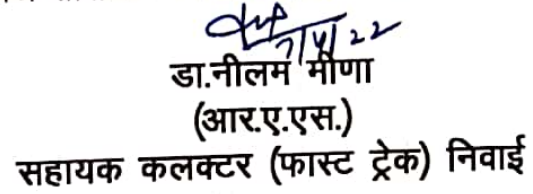 7/4/22
डा.नीलम मीणा
(आर.ए.एस.)
सहायक कलक्टर (फास्ट ट्रेक) निवाई